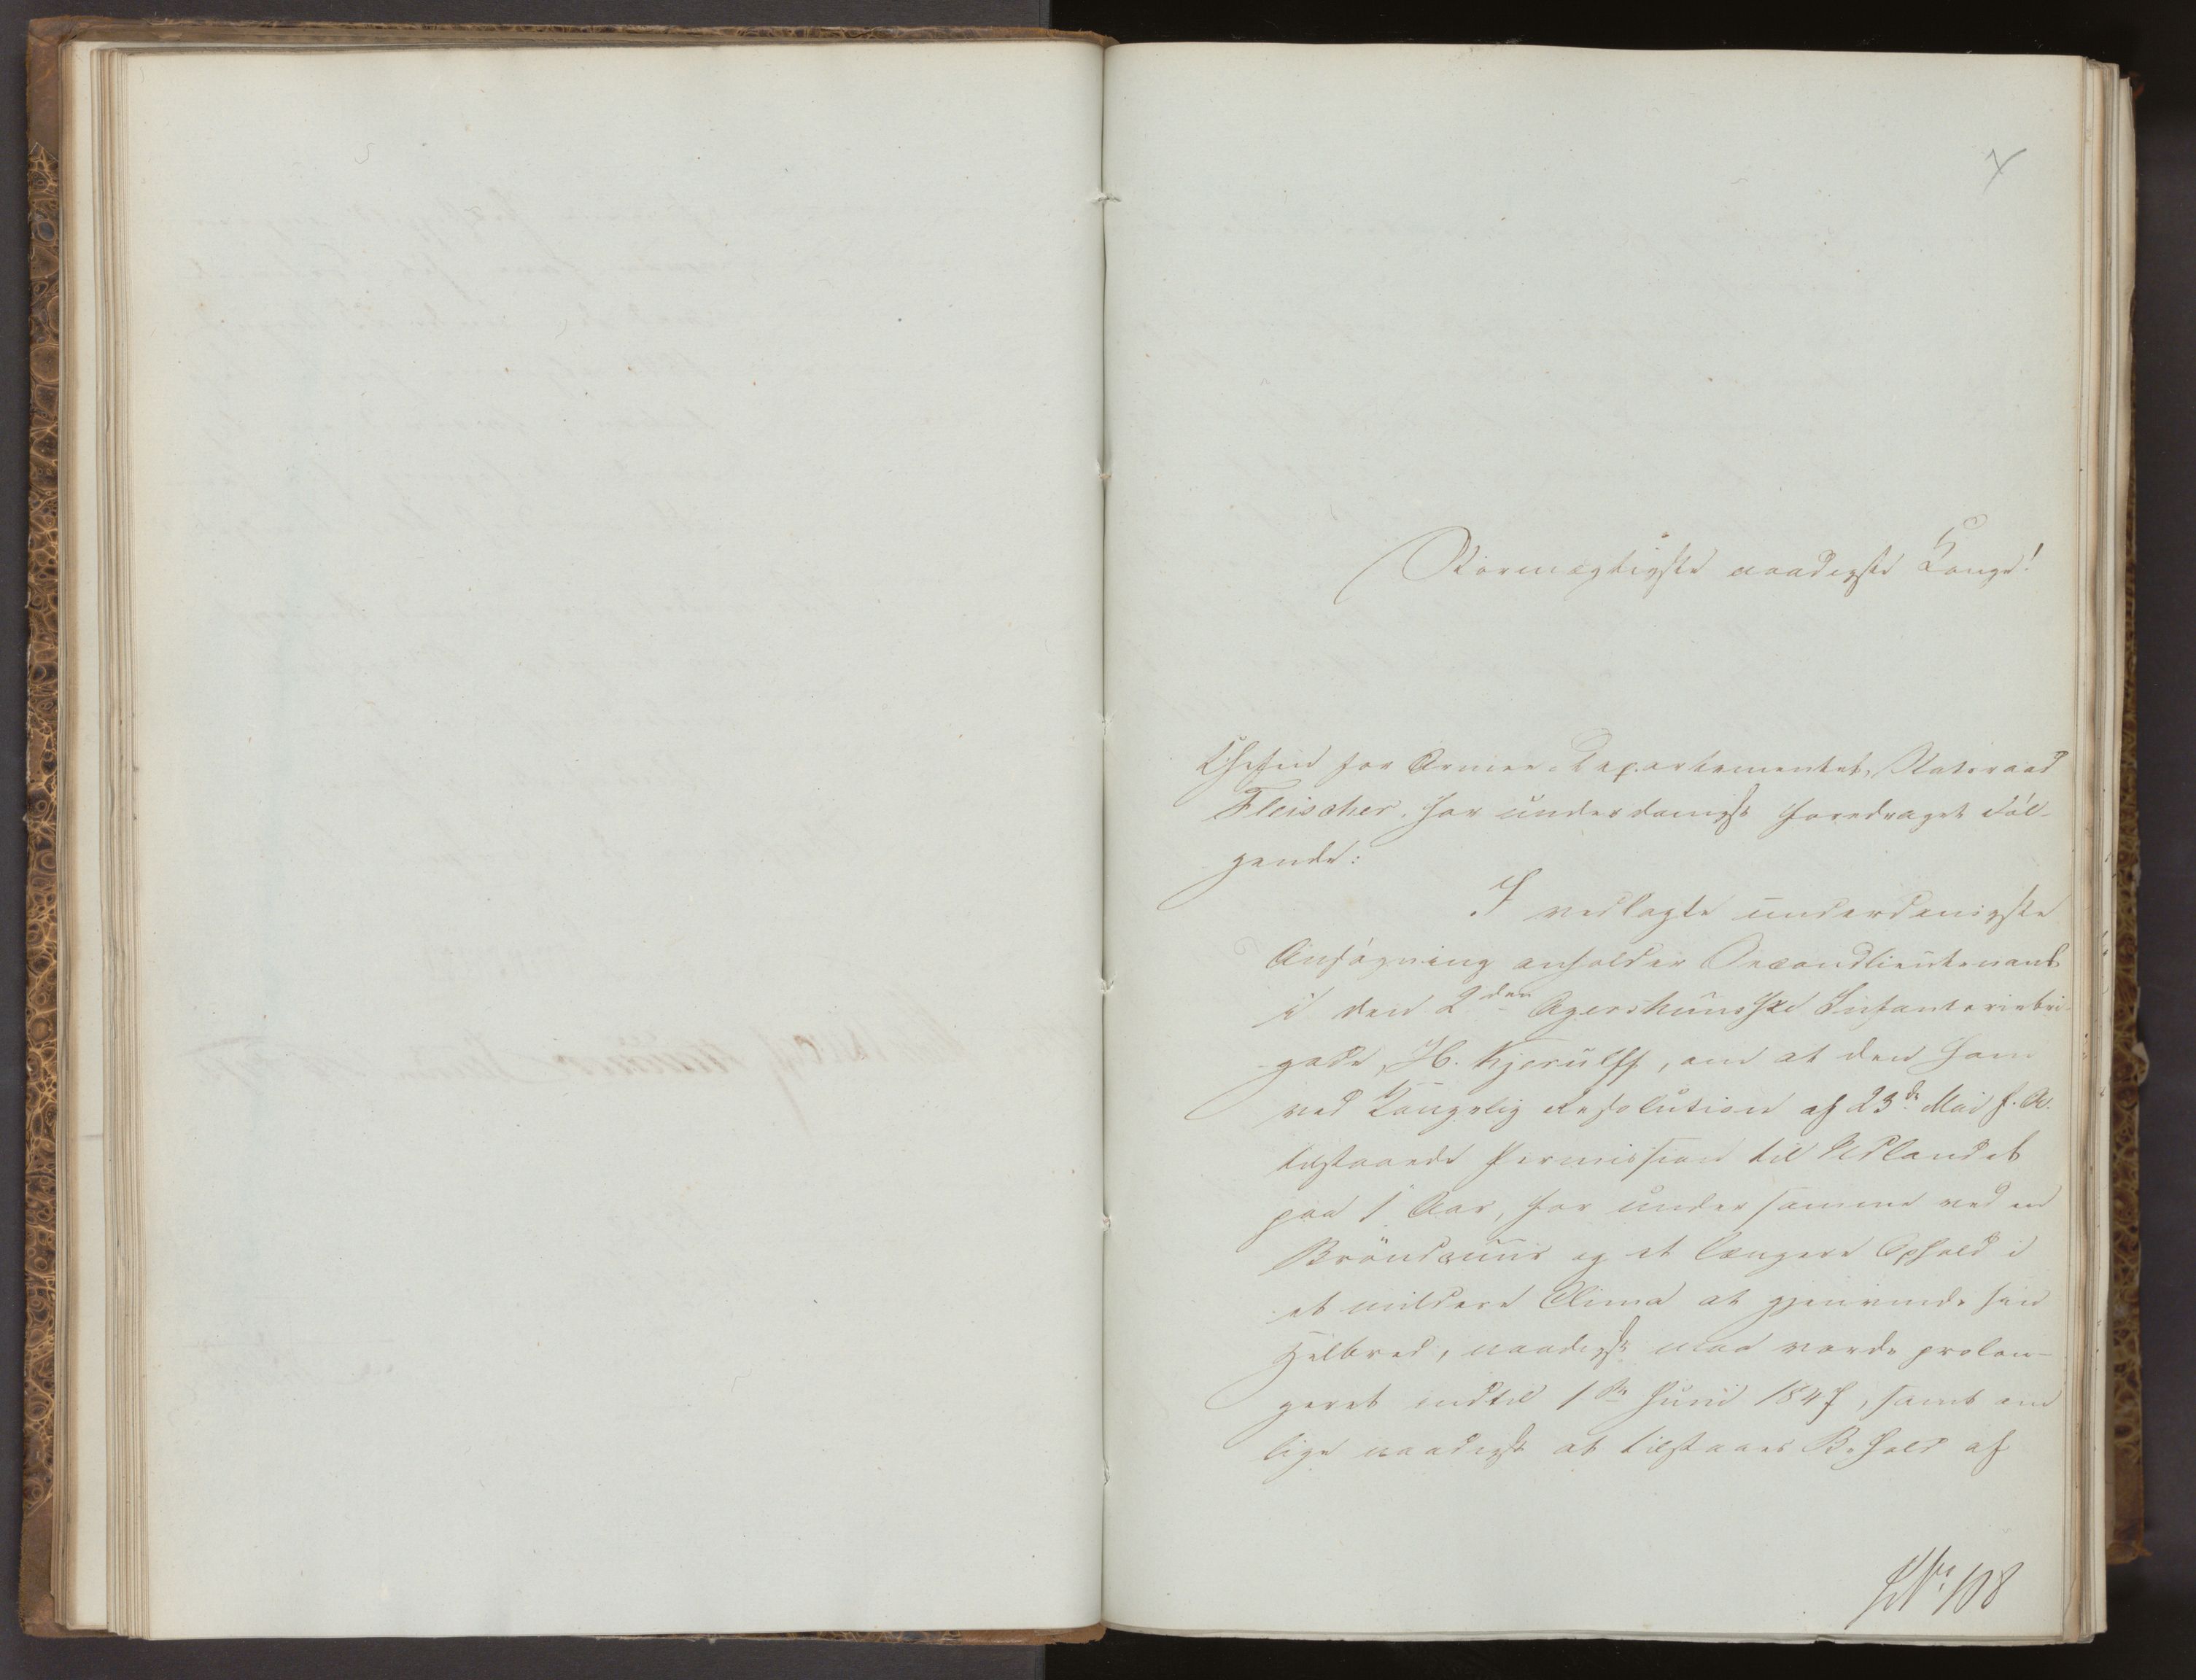 Stormægtigste naadigste Konge!
Chefen for Armee-Departementet, Statsraad
Fleischer, har underdanigst foredraget Føl-
gende:
I vedlagte underdanigste
Ansøgning anholder Secondlieutenant
i den 2den Agershuusske Infanteriebri-
gade, H. Kjerulff, om at den ham
ved Kongelig Resolution af 23de Mai f. A.
tilstaaede Permission til Udlandet
paa 1 Aar, for under samme ved en
Brøndcuur og et længere Ophold i
et mildere Clima at gjenvinde sin
Helbred, naadigst maa vorde prolon-
geret indtil 1ste Juni 1847, samt om
lige naadigst at tilstaaes Behold af
No 108